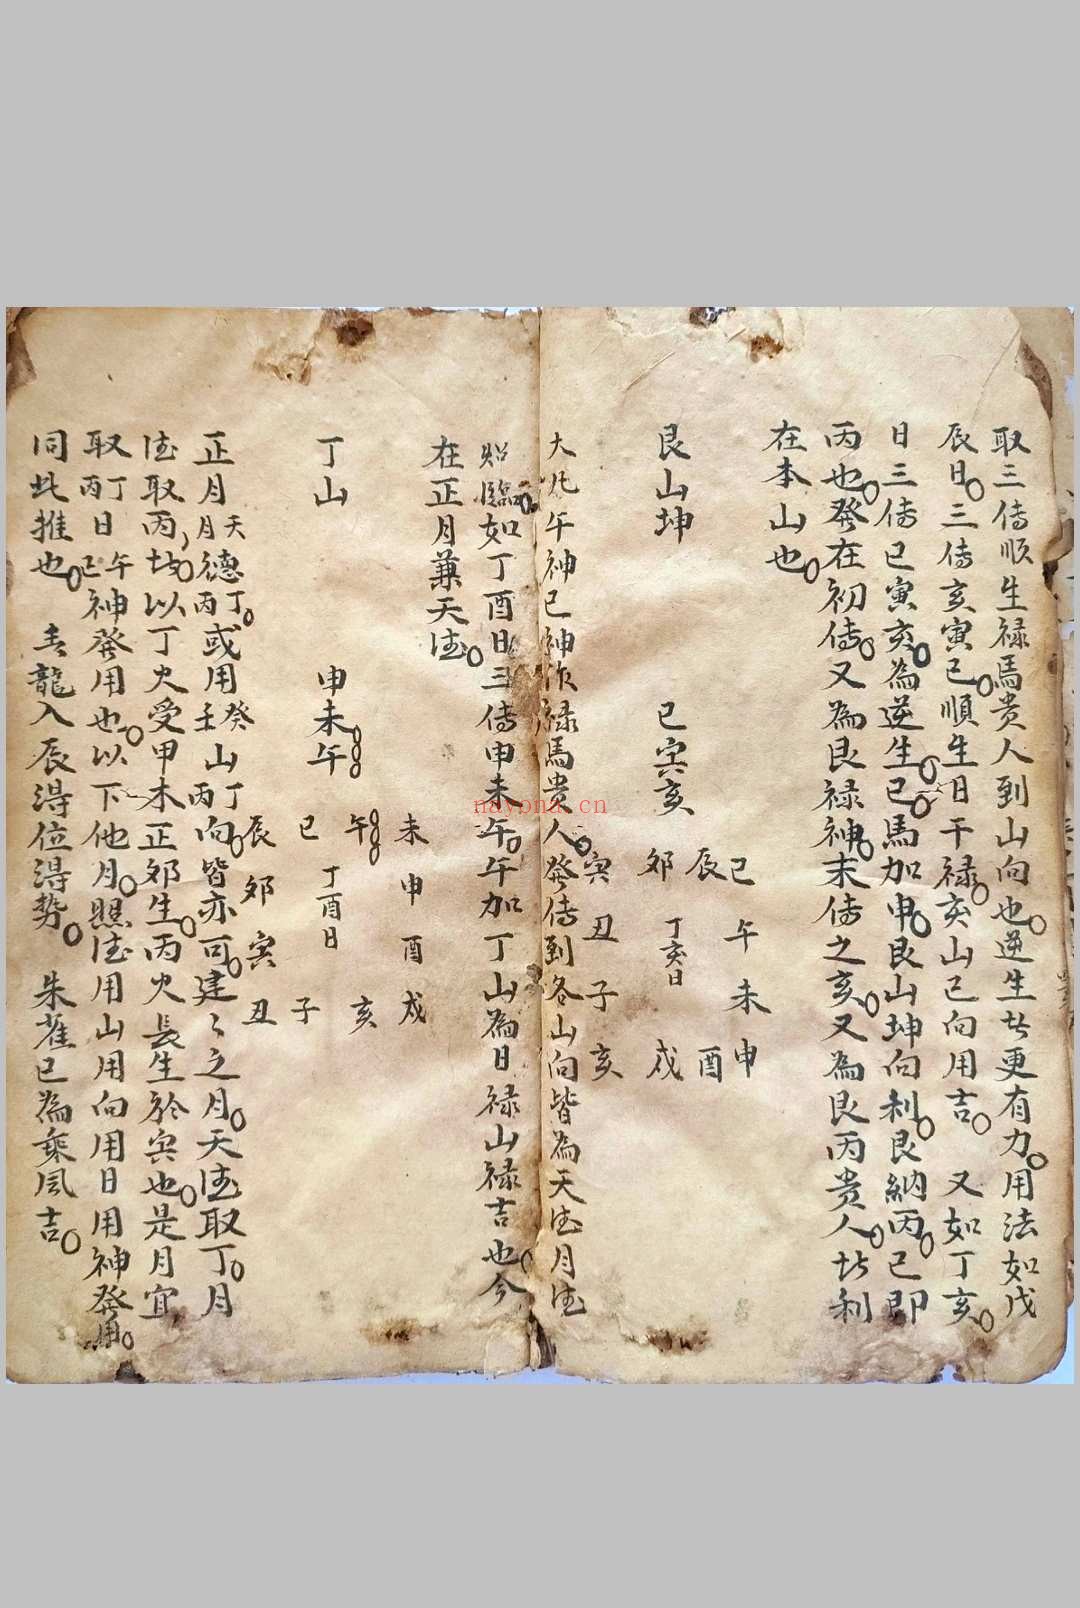 取三傳順生禄馬贵人到山向也逆生皆更有力用法如戊
辰日三傳亥寅已順生日干禄亥山已向用吉 又如丁亥
日三傳已寅亥為逆生已馬加申艮山坤向利艮納丙已即
丙也發在初傳又為艮禄神末傳之亥又為艮丙贵人皆利
在本山也
艮山坤 已寅亥
已午未申
辰 酉
郊 丁亥日 戍
寅丑子亥
大凡午神已神作禄馬贵人發傳到各山向皆為天德月德
照臨如丁酉日三傳申未午午加丁山為日禄山禄吉也今
在正月兼天德
丁山 申未午
未申酉戍
午 亥
已 丁酉日 子
辰郊寅丑
正月天德丁月德丙或用癸壬山丁丙向皆亦可建々之月天德取丁月
德取丙皆以丁火受甲木正郊生丙火長生於寅也是月宜
取丁丙日午已神發用也以下他月照德用山用向用日用神發用
同此推也 青龍入辰得位得勢 朱雀已為乘風吉
nayona.cn